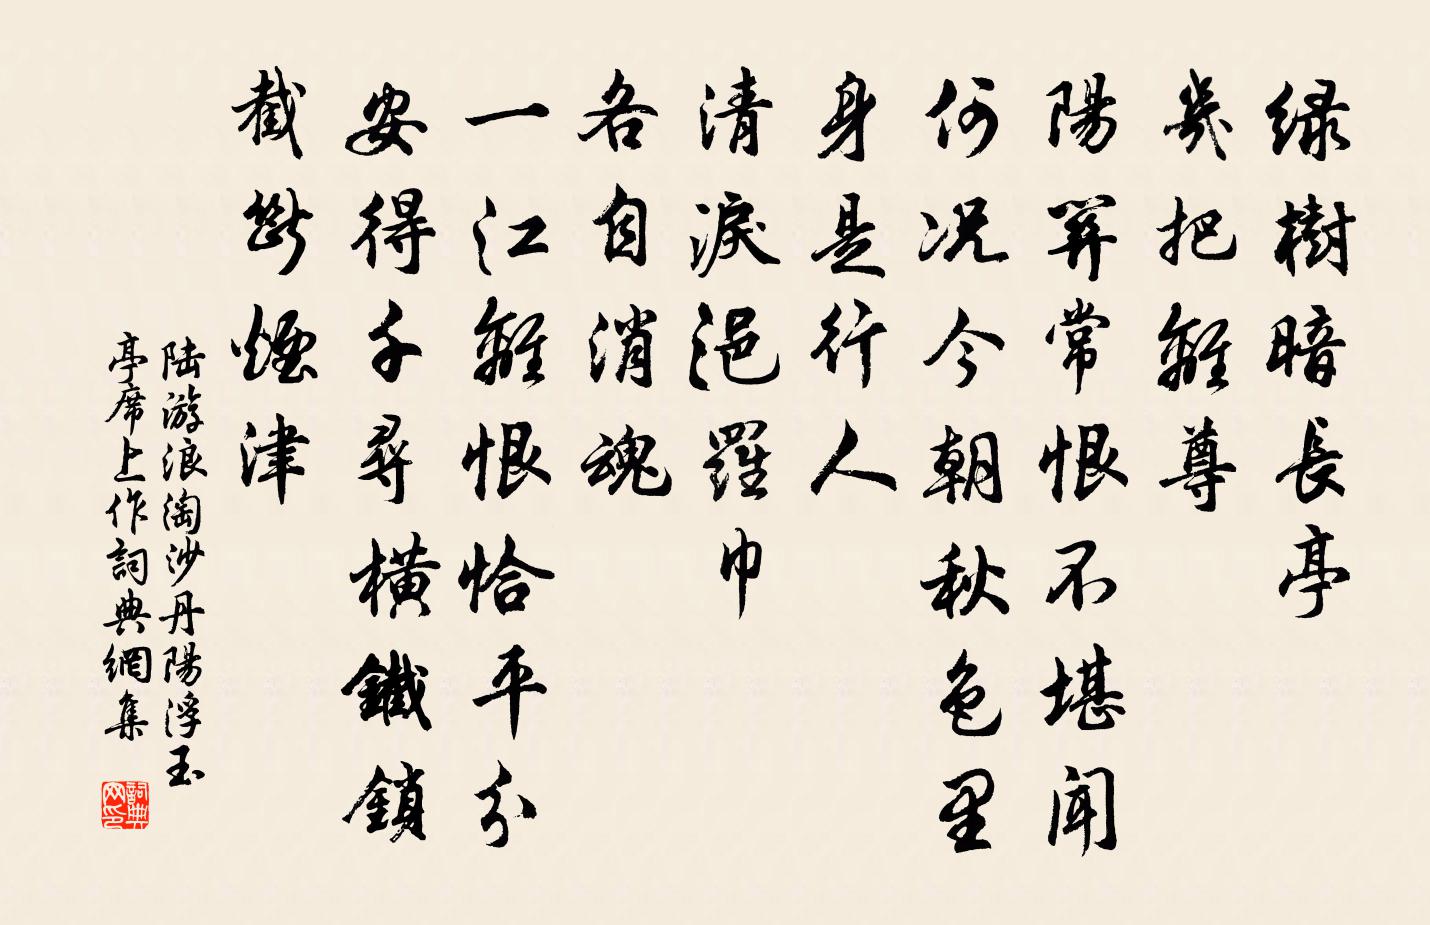 绿樹暗長亭
幾把離尊
陽關常恨不堪聞
何況今朝秋色里
身是行人
清淚浥羅巾
各自消魂
一江離恨恰平分
安得千尋橫鐵鎖
截斷煙津
陆游浪淘沙丹陽浮玉
亭席上作詞典網集
詞典
网印